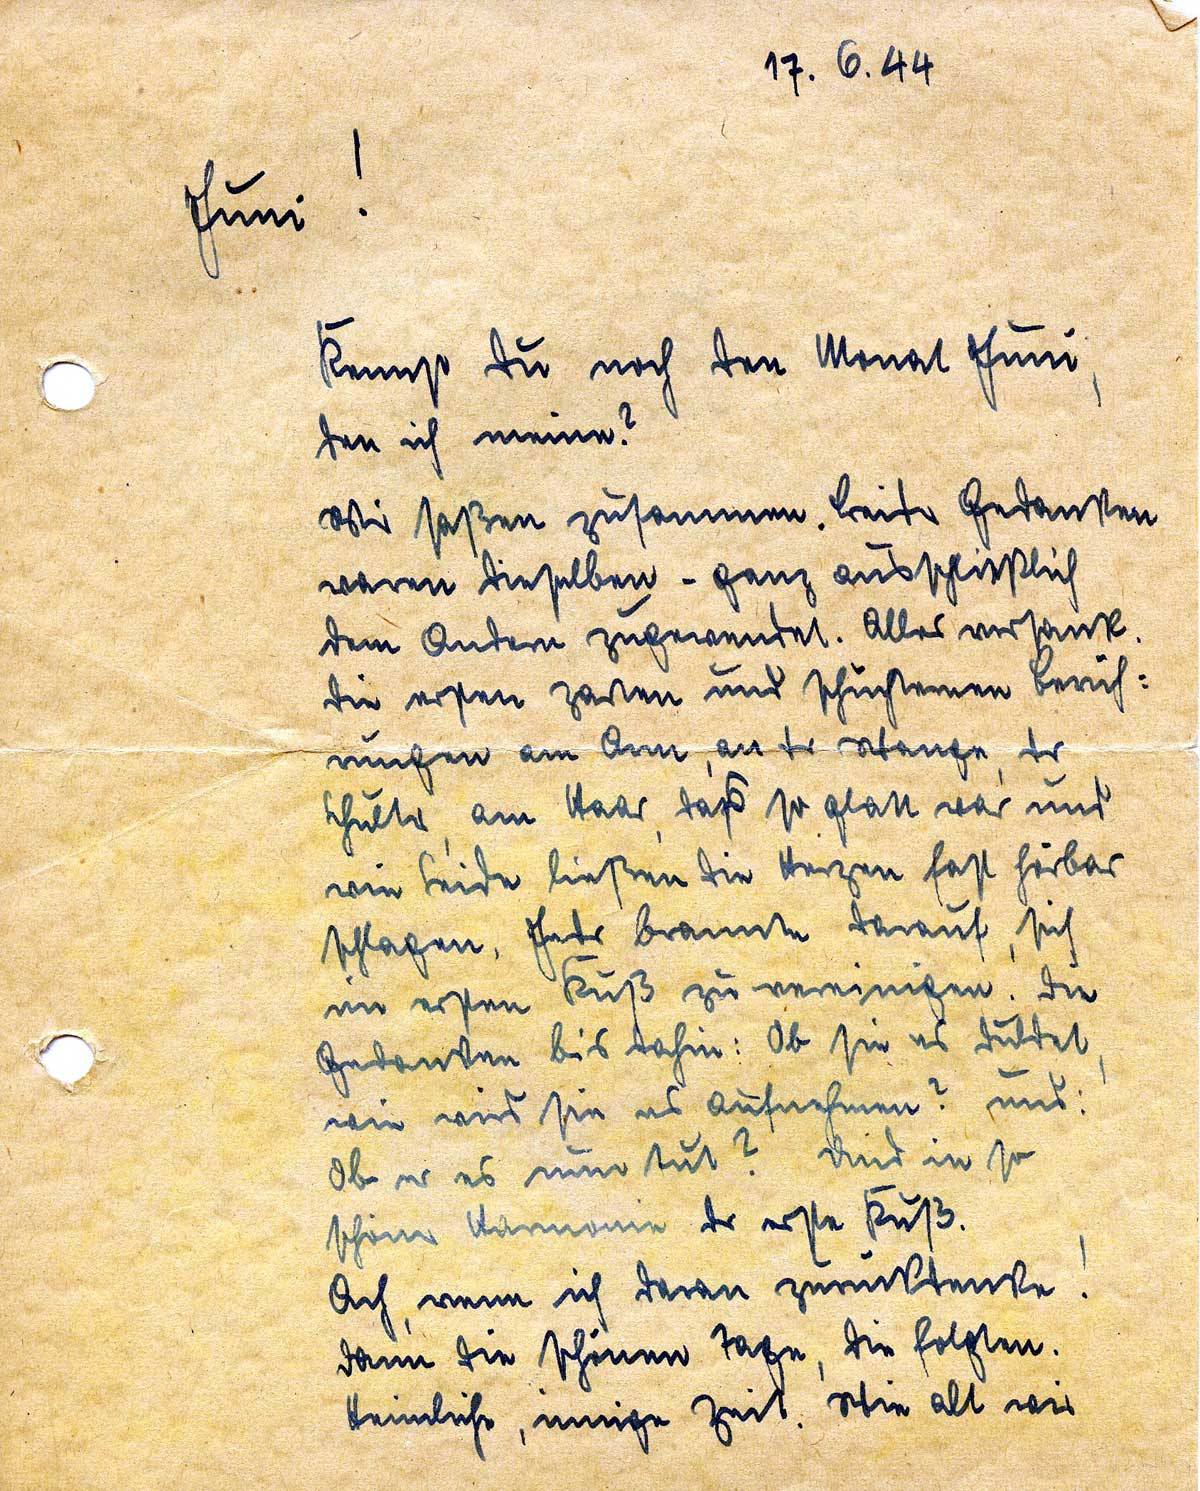 17. 6. 44
Juni!
Kennst du noch den Monat Juni,
den ich meine?
Wir saßen zusammen. Beider Gedanken
waren dieselben - ganz ausschließlich
dem Andern zugewendet. Alles versank.
Die ersten zarten und schüchternen Berüh:
rungen am Arm, an der Wange, der
Schulter, am Haar, das so glatt war und
wie Seide ließen die Herzen fast hörbar
schlagen. Jeder brannte darauf, sich
im ersten Kuß zu vereinigen. Die
Gedanken bis dahin: Ob sie es duldet,
wie wird sie es aufnehmen? und:
Ob er es nun tut? Und in so
schöner Harmonie der erste Kuß.
Ach, wenn ich daran zurückdenke!
Dann die schönen Tage, die folgten.
Heimliche, innige Zeit. Wie alt wir